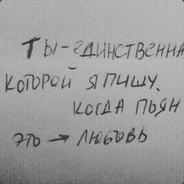 ТЫ-ЕДИНСТВЕННА
КОТОРОЙ Я ПИШУ,
КОГДА ПЬЯН
ЭТО → ЛЮБОВЬ